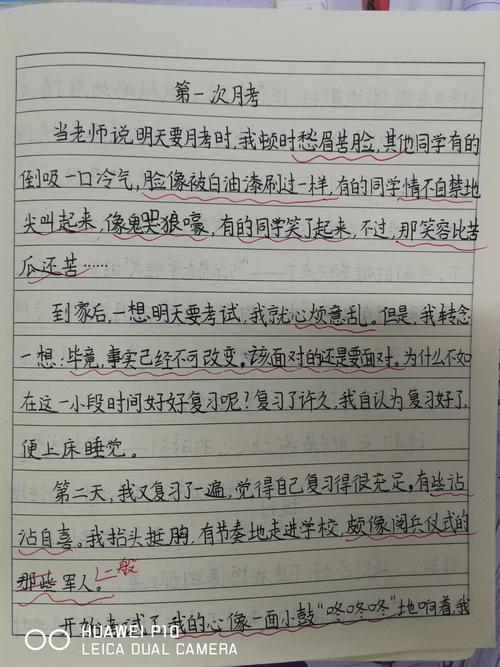 第一次月考
当老师说明天要月考时,我顿时愁眉苦脸,其他同学有的
倒吸一口冷气,脸像被白油漆刷过一样,有的同学情不自禁地
尖叫起来,像鬼哭狼嚎,有的同学笑了起来,不过,那笑容比苦
瓜还苦……
到家后,一想明天要考试,我就心烦意乱。但是,我转念
一想:毕竟,事实已经不可改变。该面对的还是要面对。为什么不如
在这一小段时间好好复习呢?复习了许久,我自认为复习好了,
便上床睡觉。
第二天,我又复习了一遍,觉得自己复习得很充足,有些沾
沾自喜。我抬头挺胸,有节奏地走进学校,颇像阅兵仪式的
那些军人。一般
开始考试了,我的心像一面小鼓“咚咚咚”地响着,我
HUAWEI P10
LEICA DUAL CAMERA